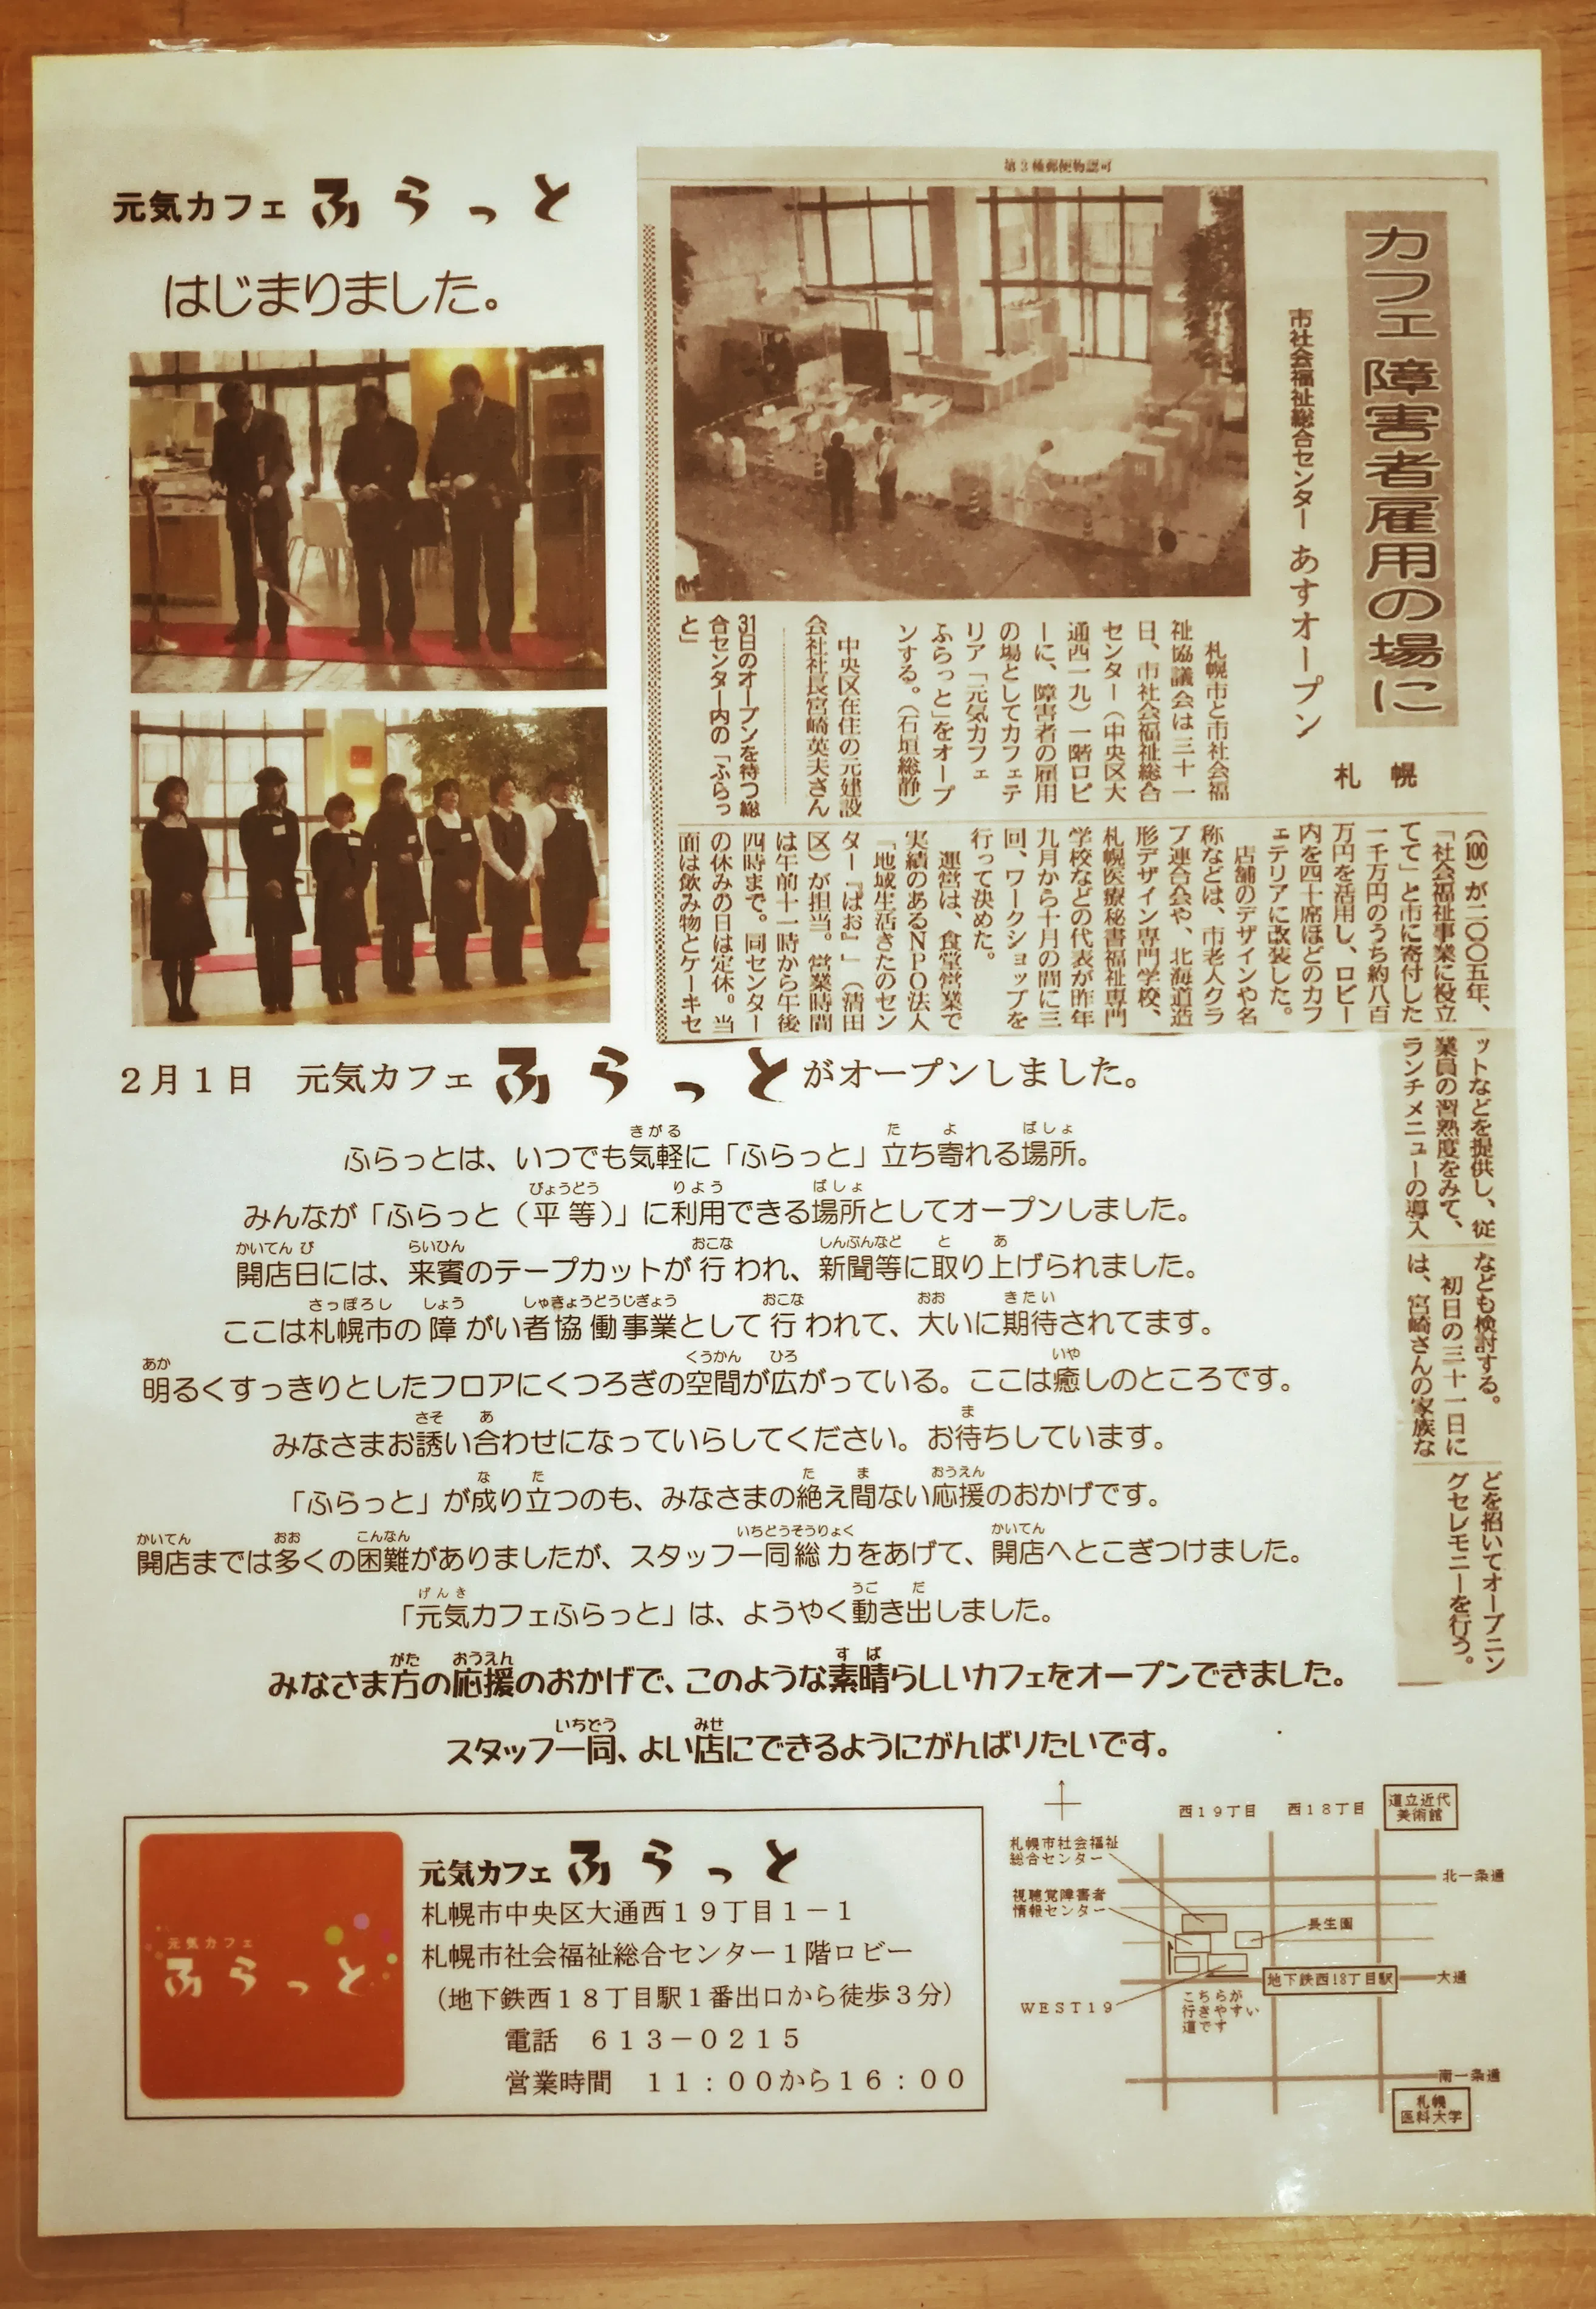 元気カフェ ふらっと
はじまりました。
第3種郵便物認可
カフェ 障害者雇用の場に
市社会福祉総合センター あすオープン
札幌
札幌市と市社会福
祉協議会は三十一
日、市社会福祉総合
センター(中央区大
通西一九)一階ロビ
ーに、障害者の雇用
の場としてカフェテ
リア「元気カフェ
ふらっと」をオープ
ンする。(石垣総静)
中央区在住の元建設
会社社長宮崎英夫さん
31日のオープンを待つ総
合センター内の「ふらっ
と」
(100)が二〇〇五年、
「社会福祉事業に役立
てて」と市に寄付した
一千万円のうち約八百
万円を活用し、ロビー
内を四十席ほどのカフ
ェテリアに改装した。
店舗のデザインや名
称などは、市老人クラ
ブ連合会や、北海道造
形デザイン専門学校、
札幌医療秘書福祉専門
学校などの代表が昨年
九月から十月の間に三
回、ワークショップを
行って決めた。
運営は、食堂営業で
実績のあるNPO法人
「地域生活きたのセン
ター『ぱお』」(清田
区)が担当。営業時間
は午前十一時から午後
四時まで。同センター
の休みの日は定休。当
面は飲み物とケーキセ
ットなどを提供し、従
業員の習熟度をみて、
ランチメニューの導入
なども検討する。
初日の三十一日に
は、宮崎さんの家族な
どを招いてオープニン
グセレモニーを行う。
2月1日 元気カフェ ふらっと がオープンしました。
きがる た よ ばしょ
ふらっとは、いつでも気軽に「ふらっと」立ち寄れる場所。
びょうどう りよう ばしょ
みんなが「ふらっと(平等)」に利用できる場所としてオープンしました。
かいてん び らいひん おこな しんぶんなど と あ
開店日には、来賓のテープカットが行われ、新聞等に取り上げられました。
さっぽろし しょう しゃきょうどうじぎょう おこな おお きたい
ここは札幌市の障がい者協働事業として行われて、大いに期待されてます。
あか くうかん ひろ いや
明るくすっきりとしたフロアにくつろぎの空間が広がっている。ここは癒しのところです。
さそ あ ま
みなさまお誘い合わせになっていらしてください。お待ちしています。
な た た ま おうえん
「ふらっと」が成り立つのも、みなさまの絶え間ない応援のおかげです。
かいてん おお こんなん いちどうそうりょく かいてん
開店までは多くの困難がありましたが、スタッフ一同総力をあげて、開店へとこぎつけました。
げんき うご だ
「元気カフェふらっと」は、ようやく動き出しました。
がた おうえん すば
みなさま方の応援のおかげで、このような素晴らしいカフェをオープンできました。
いちどう みせ
スタッフ一同、よい店にできるようにがんばりたいです。
元気カフェ
ふらっと
元気カフェ ふらっと
札幌市中央区大通西19丁目1-1
札幌市社会福祉総合センター1階ロビー
(地下鉄西18丁目駅1番出口から徒歩3分)
電話 613-0215
営業時間 11:00から16:00
西19丁目 西18丁目
道立近代
美術館
札幌市社会福祉
総合センター
北一条通
視聴覚障害者
情報センター
長生園
地下鉄西18丁目駅
大通
WEST19
こちらが
行きやすい
道です
南一条通
札幌
医科大学